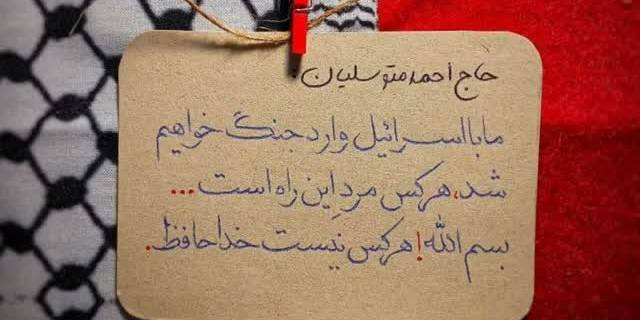 حاج احمد متوسلیان:
ما با اسرائیل وارد جنگ خواهیم
شد، هرکس مردِ این راه است...
بسم الله! هرکس نیست خداحافظ.